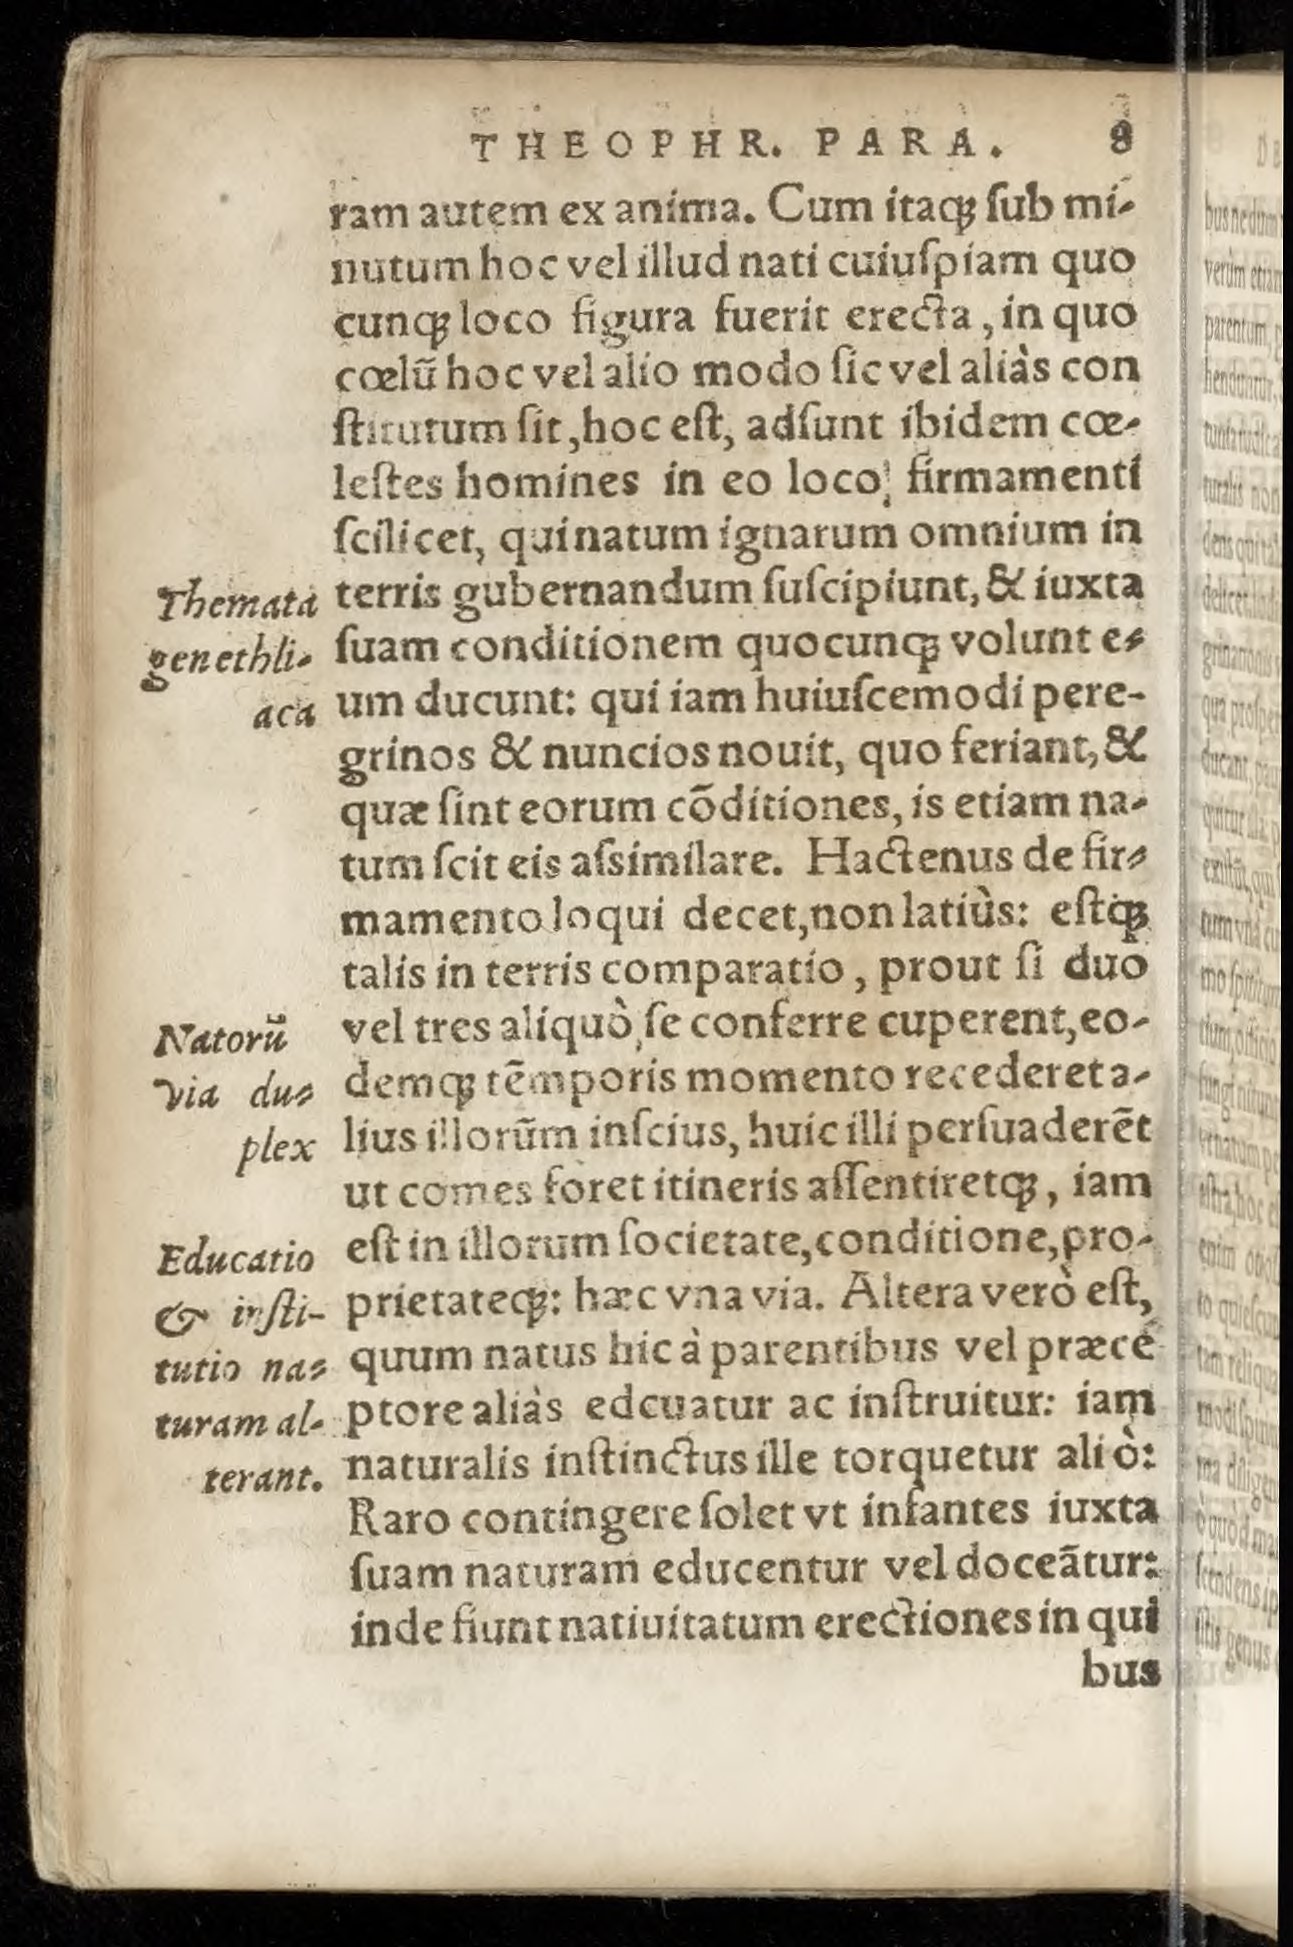 THEOPHR. PARA. 8
ram autem ex anima. Cum itaqꝫ ſub mi-
nutum hoc vel illud nati cuiuſpiam quo
cunqꝫ loco figura fuerit erecta, in quo
cœlũ hoc vel alio modo ſic vel aliàs con
ſtitutum ſit, hoc eſt, adſunt ibidem cœ-
leſtes homines in eo loco, firmamenti
ſcilicet, qui natum ignarum omnium in
terris gubernandum ſuſcipiunt, & iuxta
ſuam conditionem quocunqꝫ volunt e-
um ducunt: qui iam huiuſcemodi pere-
grinos & nuncios nouit, quo feriant, &
quæ ſint eorum cõditiones, is etiam na-
tum ſcit eis aſsimilare. Hactenus de fir-
mamento loqui decet, non latiùs: eſtqꝫ
talis in terris comparatio, prout ſi duo
vel tres aliquò ſe conferre cuperent, eo-
demqꝫ tẽmporis momento recederet a-
lius illorũm inſcius, huic illi perſuaderẽt
ut comes foret itineris aſſentiretqꝫ, iam
eſt in illorum ſocietate, conditione, pro-
prietateqꝫ: hæc vna via. Altera verò eſt,
quum natus hic à parentibus vel præce
ptore aliàs edcuatur ac inſtruitur: iam
naturalis inſtinctus ille torquetur aliò:
Raro contingere ſolet vt infantes iuxta
ſuam naturam educentur vel doceãtur:
inde fiunt natiuitatum erectiones in qui
bus
Themata
genethli-
aca
Natorũ
via du-
plex
Educatio
& inſti-
tutio na-
turam al-
terant.